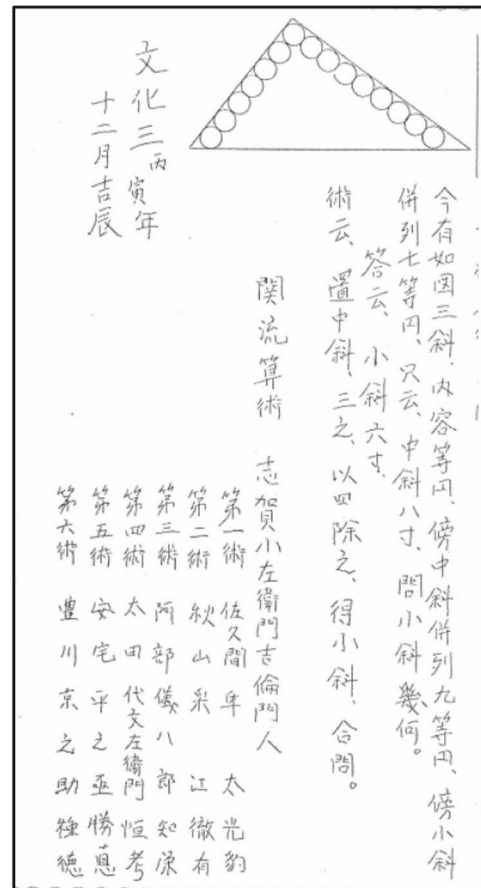 今有如図三斜、内容等円、傍中斜併列九等円、傍小斜
併列七等円、只云、中斜八寸、問小斜幾何。
答云、小斜六寸、
術云、置中斜、三之、以四除之、得小斜、合問。
関流算術 志賀小左衛門吉倫門人
第一術 佐久間隼太光豹
第二術 秋山 江徹有
第三術 阿部儀八郎知
第四術 太田代文左衛門恒考
第五術 安宅平之亟勝恵
第六術 豊川京之助種徳
文化三丙寅年
十二月吉辰